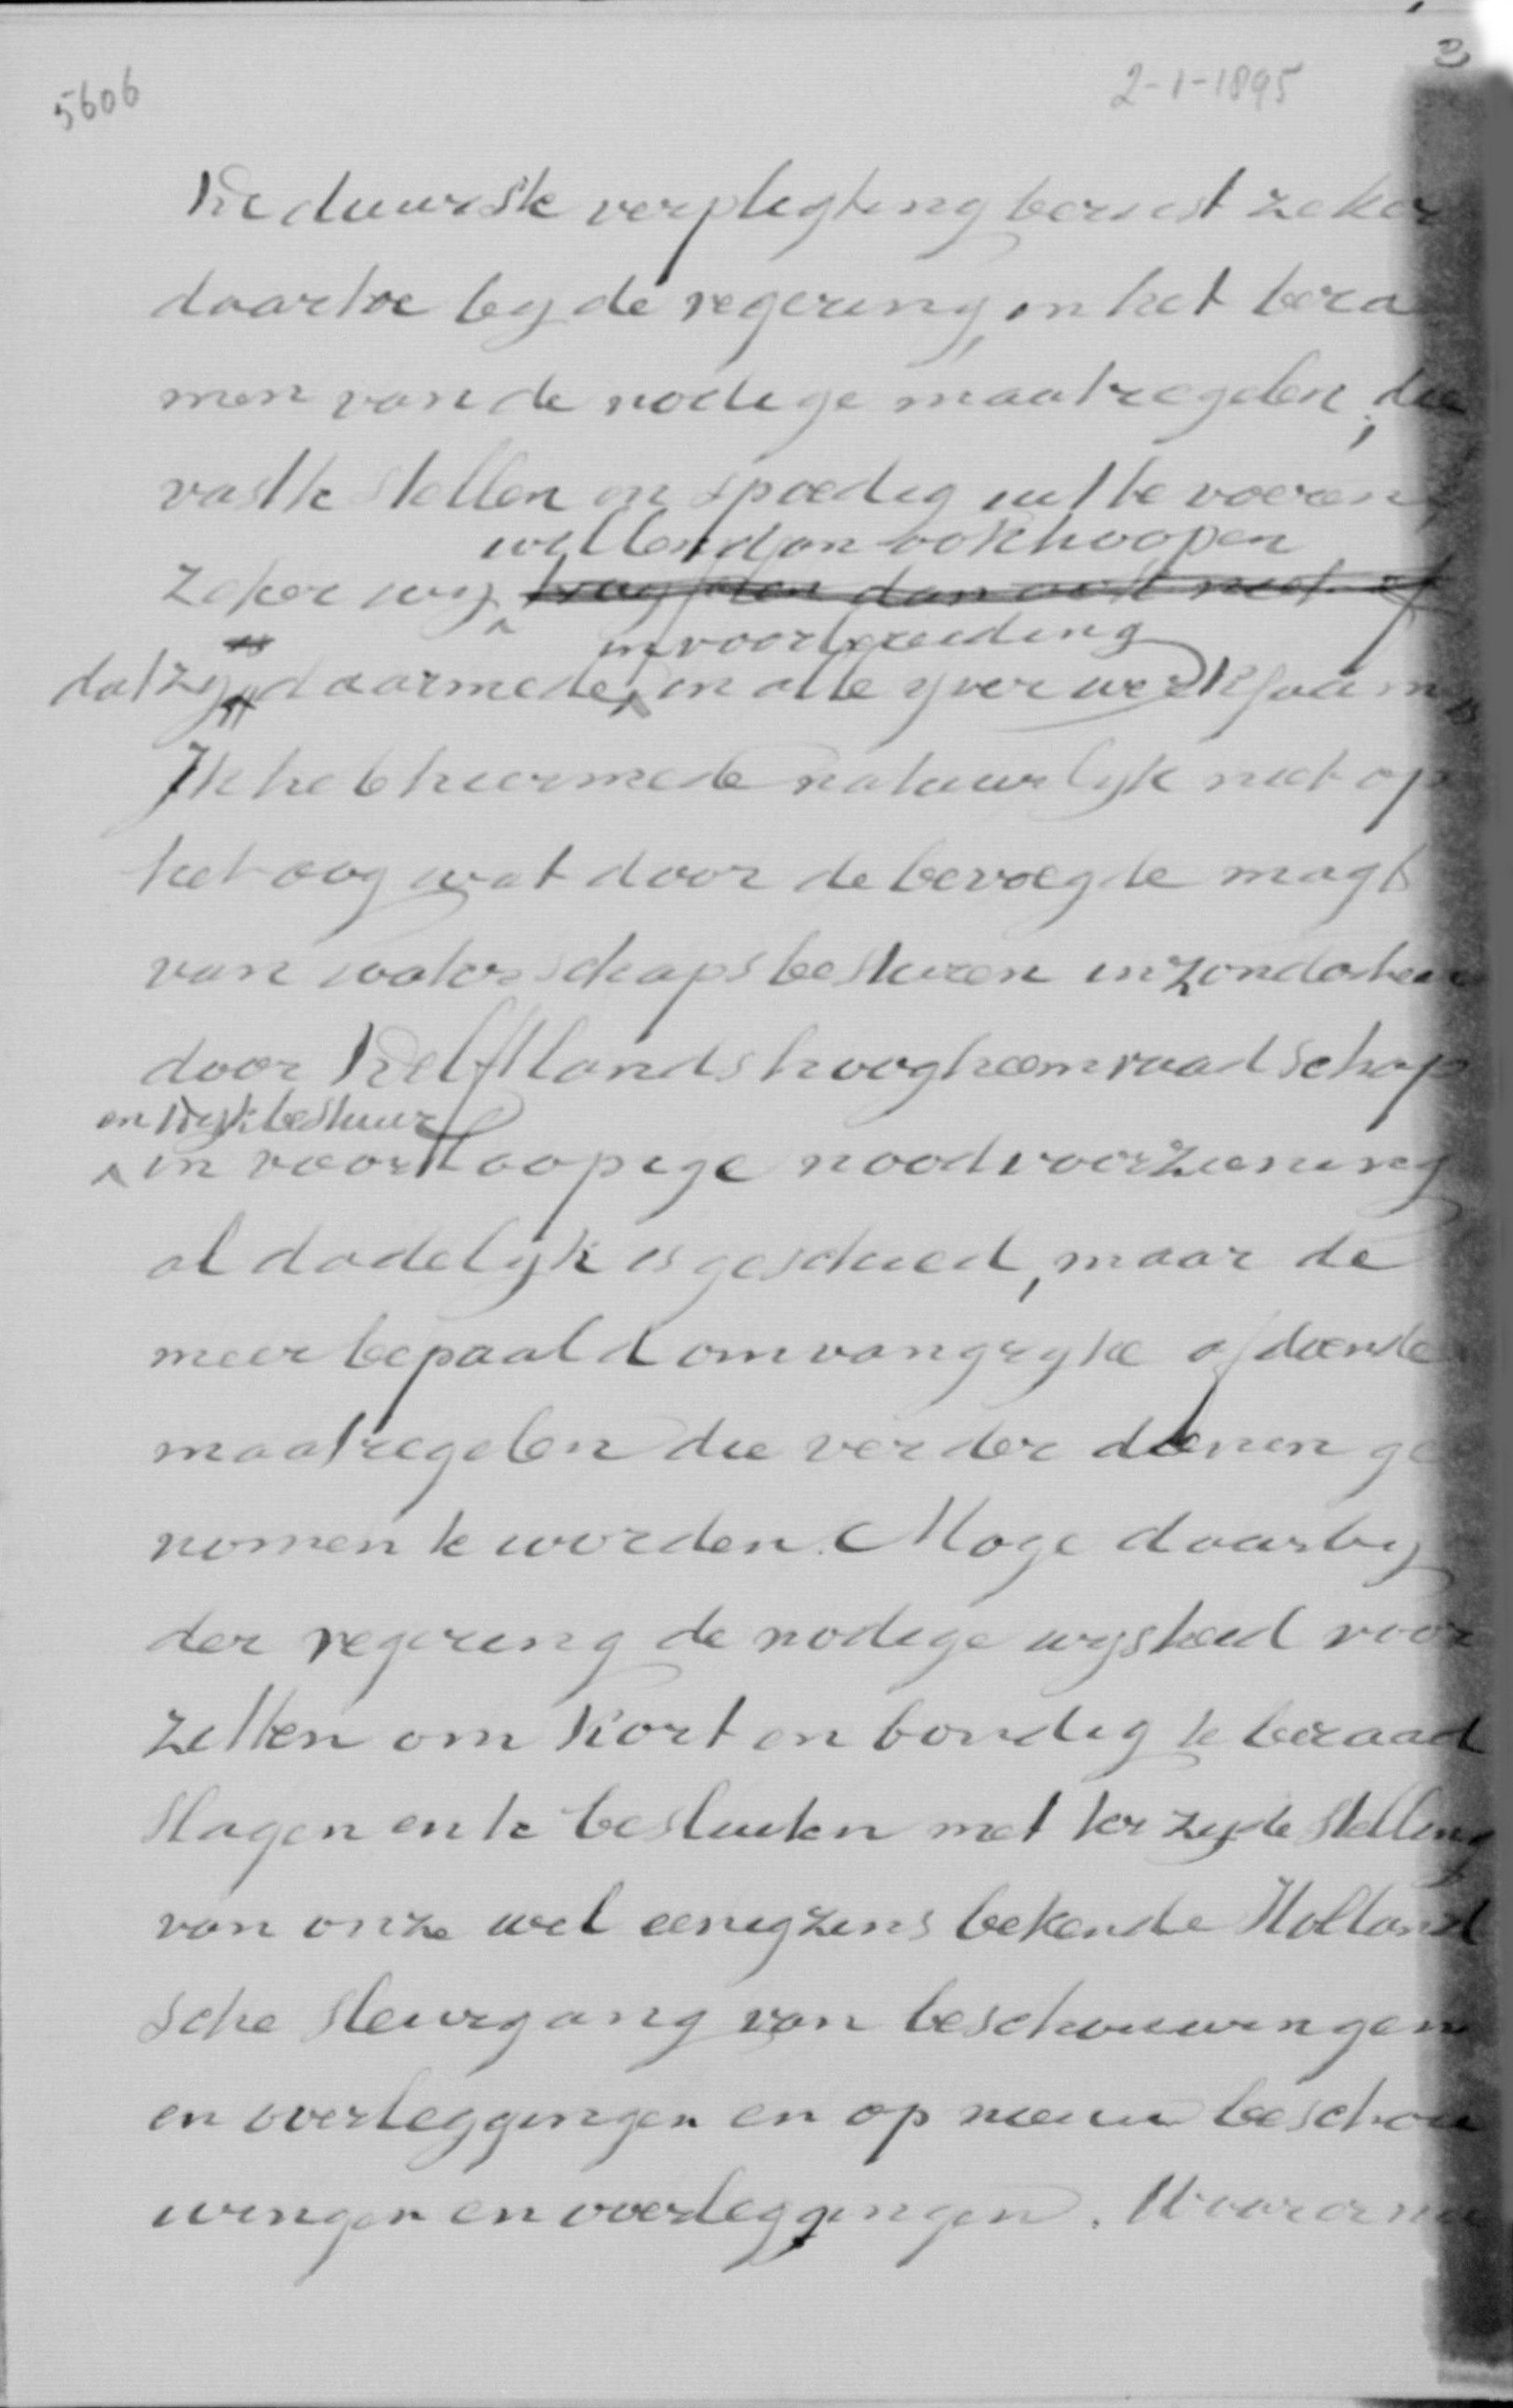 3
5606
2-1-1895
De duurste verpligting berust zeker
daartoe by de regering, in het bera
men van de nodige maatregelen, die
vast te stellen en spoedig uit te voeren,
willen dan ook hoopen
Zeker wy
in voorbereiding
dat zy daarmede in alle yver werkzaam is
Ik heb hiermede natuurlyk niet op
het oog wat door de bevoegde magt
van waterschapsbesturen inzonderheid
door Delftlands hoogheemraadschap
en Dykbestuur
in voorloopige noodvoorziening
al dadelyk is geschied, maar de
meer bepaald omvangryke afdoende
maatregelen die verder dienen ge
nomen te worden. Moge daarby
der regering de nodige wysheid voor
zitten om kort en bondig te beraad
slagen en te besluiten met ter zyde stelling
van onze wel eenigzins bekende Holland
sche sleurgang van beschouwingen
en overleggingen en op nieuw beschou
wingen en overleggingen. Waarom